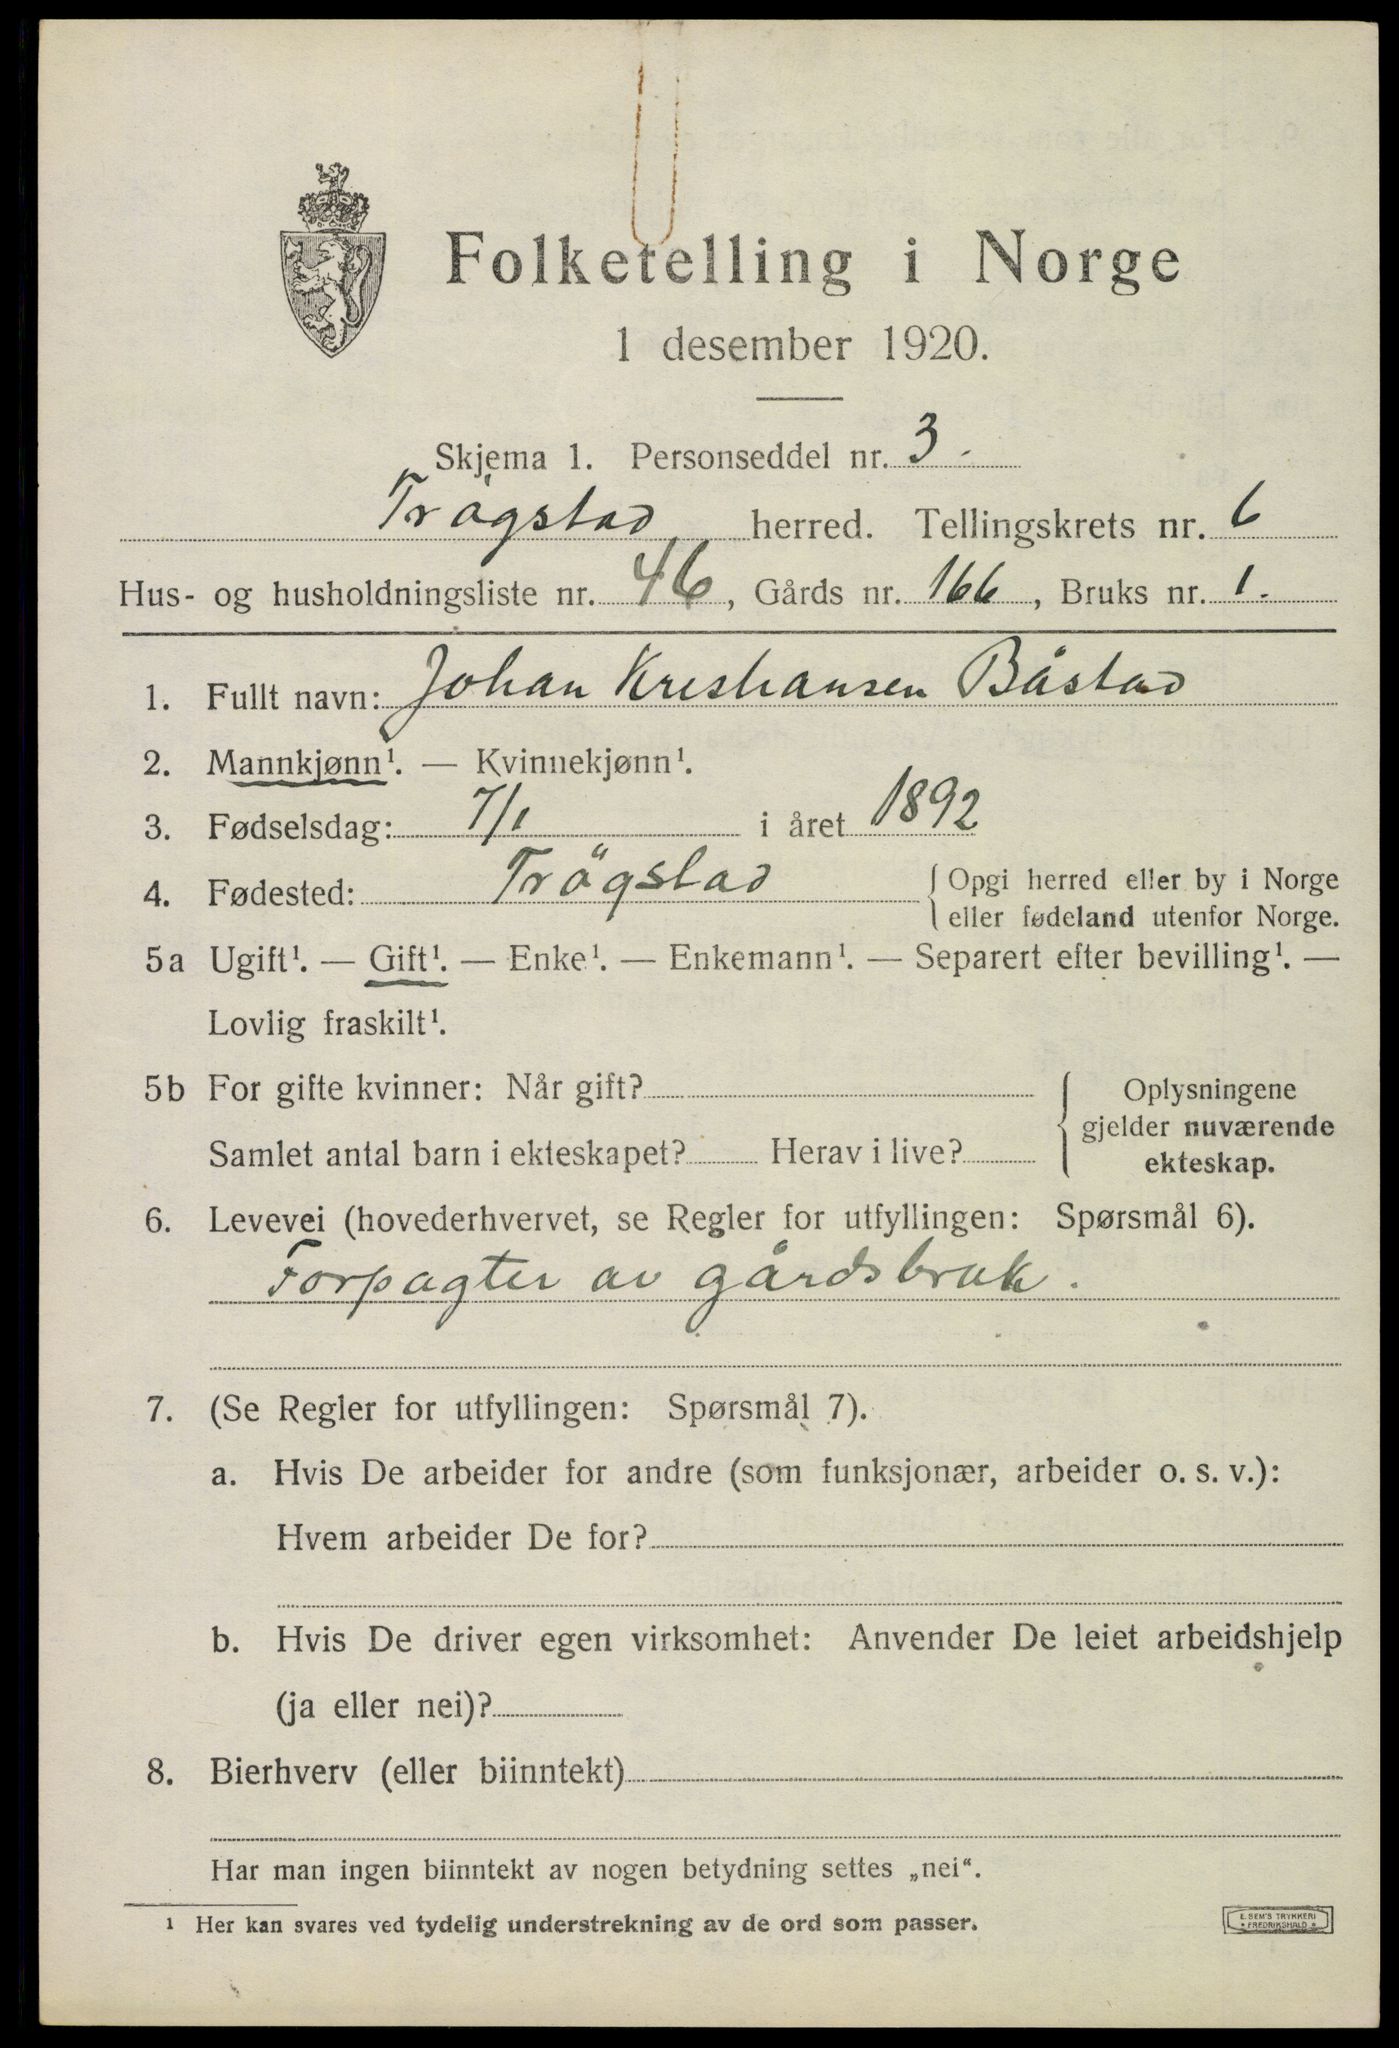 Folketelling i Norge
1 desember 1920.
Skjema 1. Personseddel nr. 3.
Trögstad herred. Tellingskrets nr. 6
Hus- og husholdningsliste nr. 46, Gårds nr. 166, Bruks nr. 1.
1. Fullt navn: Johan Kristiansen Båstad
2. Mannkjønn¹. — Kvinnekjønn¹.
3. Fødselsdag: 7/1 i året 1892
4. Fødested: Trögstad { Opgi herred eller by i Norge
eller fødeland utenfor Norge.
5a Ugift¹. — Gift¹. — Enke¹. — Enkemann¹. — Separert efter bevilling¹. —
Lovlig fraskilt¹.
5b For gifte kvinner: Når gift?
Samlet antal barn i ekteskapet? Herav i live?
{ Oplysningene
gjelder nuværende
ekteskap.
6. Levevei (hovederhvervet, se Regler for utfyllingen: Spørsmål 6).
Forpagter av gårdsbruk.
7. (Se Regler for utfyllingen: Spørsmål 7).
a. Hvis De arbeider for andre (som funksjonær, arbeider o. s. v.):
Hvem arbeider De for?
b. Hvis De driver egen virksomhet: Anvender De leiet arbeidshjelp
(ja eller nei)?
8. Bierhverv (eller biinntekt)
Har man ingen biinntekt av nogen betydning settes „nei“.
¹ Her kan svares ved tydelig understrekning av de ord som passer.
E. SEM'S TRYKKERI
* FREDRIKSHALD *